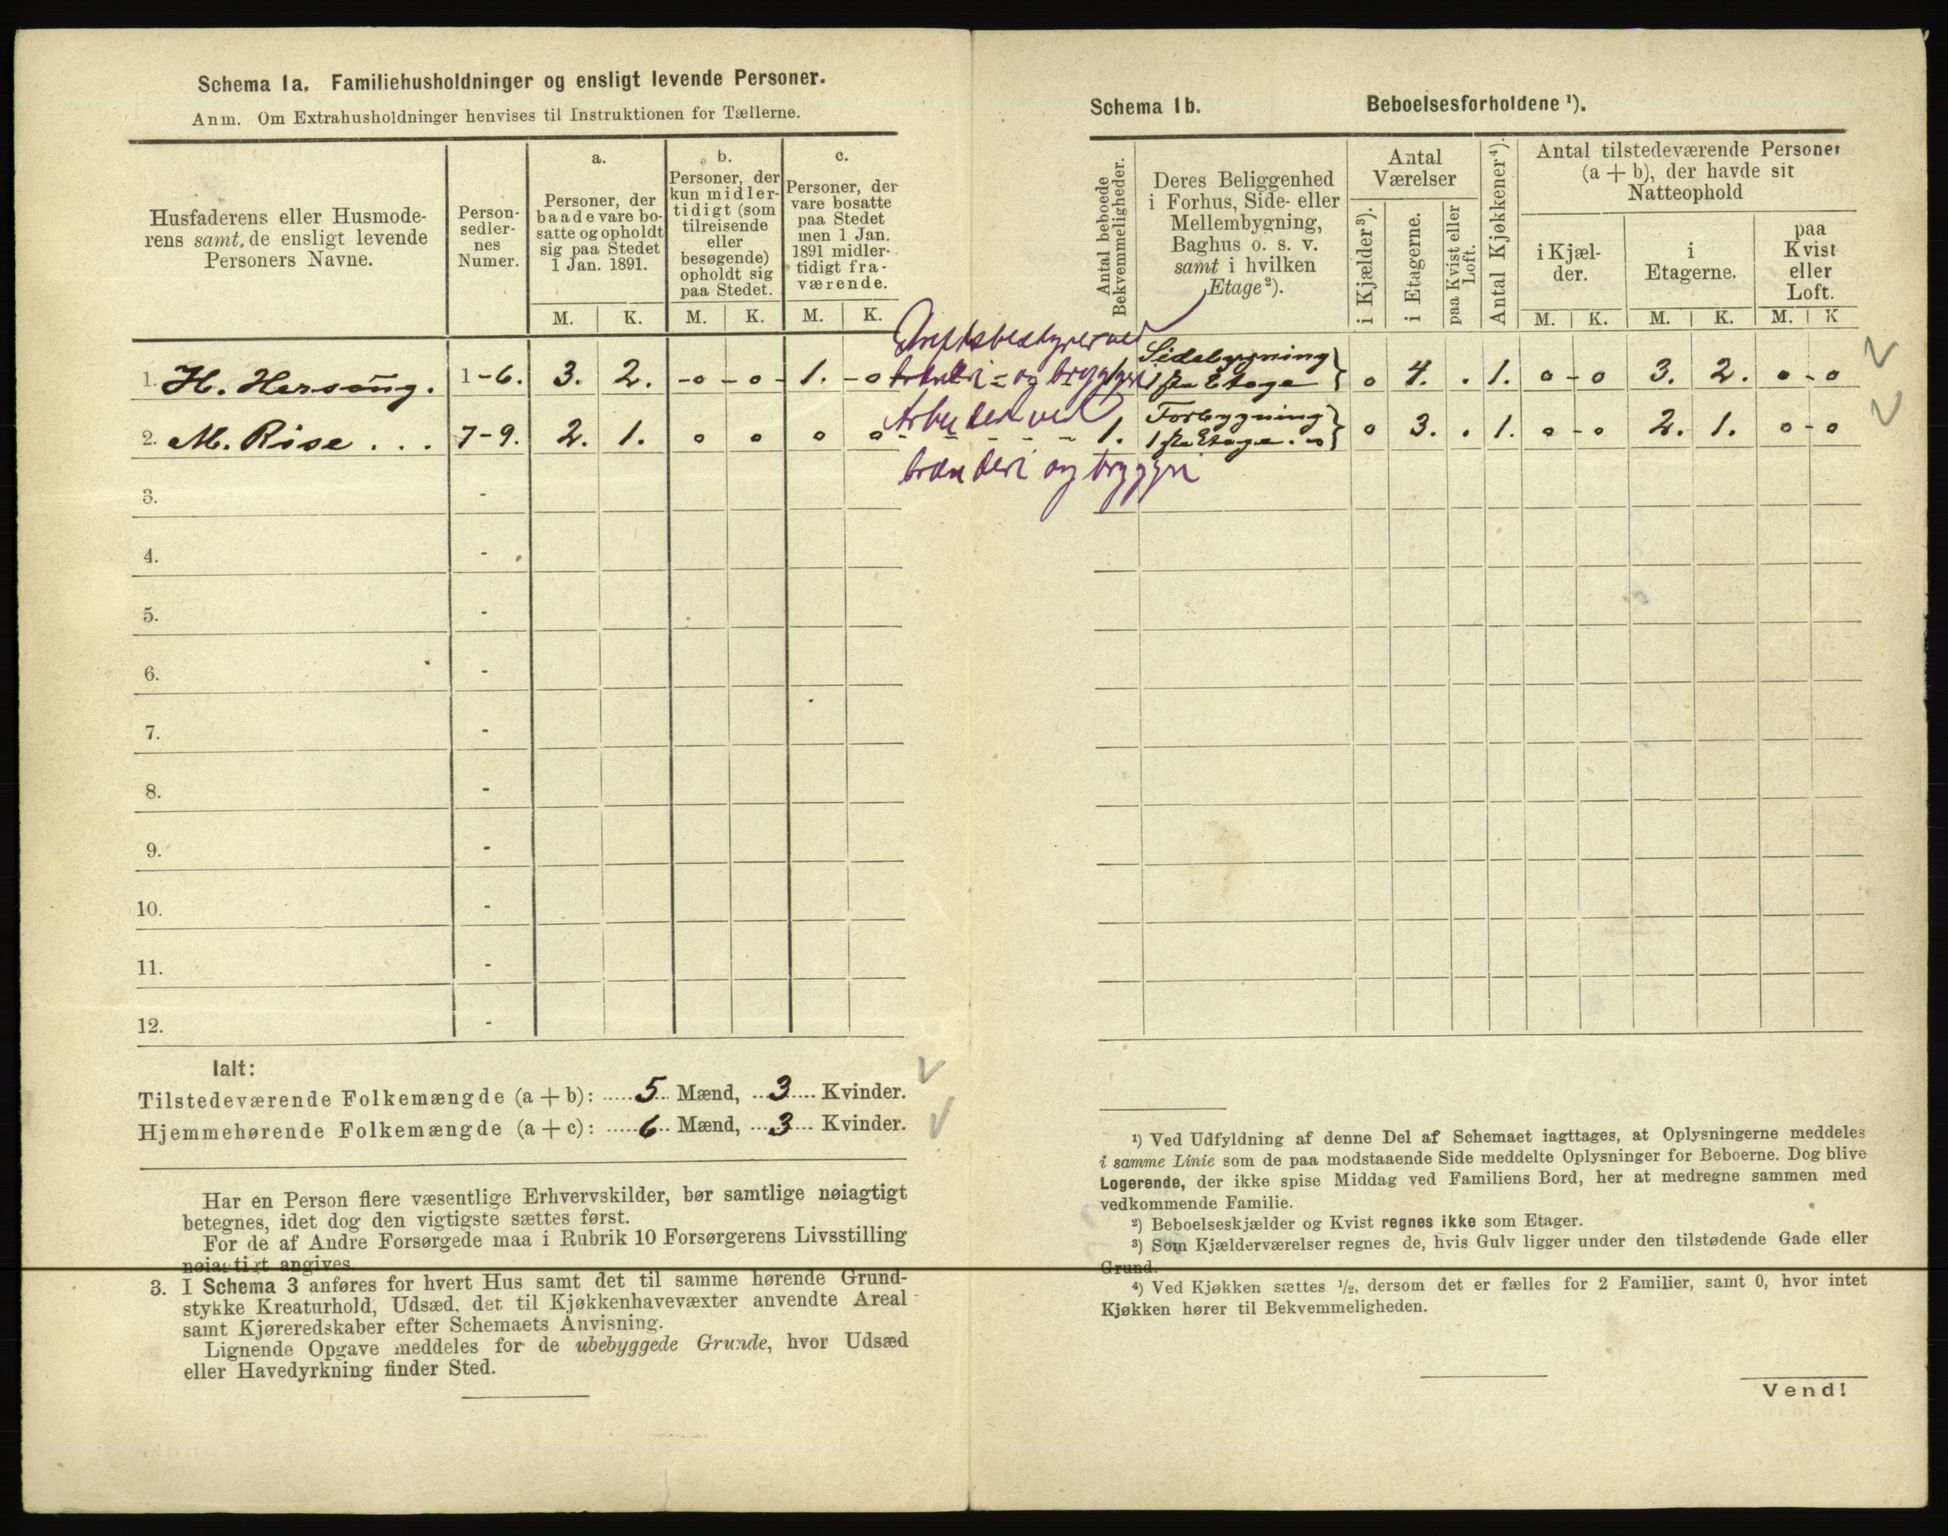 Schema 1a. Familiehusholdninger og ensligt levende Personer.
Anm. Om Extrahusholdninger henvises til Instruktionen for Tællerne.
Husfaderens eller Husmode-
rens samt de ensligt levende
Personers Navne.
Person-
sedler-
nes
Numer.
a.
Personer, der
baade vare bo-
satte og opholdt
sig paa Stedet
1 Jan. 1891.
M. K.
b.
Personer, der
kun midler-
tidigt (som
tilreisende
eller
besøgende)
opholdt sig
paa Stedet.
M. K.
c.
Personer, der
vare bosatte
paa Stedet
men 1 Jan.
1891 midler-
tidigt fra-
værende.
M. K.
1. H. Hersoug. 1-6. 3. 2. - o - o - 1. - o
2. M. Röse . . . 7-9. 2. 1. o o o o
3. -
4. -
5. -
6. -
7. -
8. -
9. -
10. -
11. -
12. -
Ialt:
Tilstedeværende Folkemængde (a + b): 5 Mænd, 3 Kvinder.
Hjemmehørende Folkemængde (a + c): 6 Mænd, 3 Kvinder.
Har en Person flere væsentlige Erhvervskilder, bør samtlige nøiagtigt
betegnes, idet dog den vigtigste sættes først.
For de af Andre Forsørgede maa i Rubrik 10 Forsørgerens Livsstilling
nøiagtigt angives.
3. I Schema 3 anføres for hvert Hus samt det til samme hørende Grund-
stykke Kreaturhold, Udsæd, det til Kjøkkenhavevæxter anvendte Areal
samt Kjøreredskaber efter Schemaets Anvisning.
Lignende Opgave meddeles for de ubebyggede Grunde, hvor Udsæd
eller Havedyrkning finder Sted.
Schema 1b. Beboelsesforholdene ¹).
Antal beboede
Bekvemmeligheder.
Deres Beliggenhed
i Forhus, Side- eller
Mellembygning,
Baghus o. s. v.
samt i hvilken
Etage ²).
Antal
Værelser
i Kjælder ³).
i Etagerne.
paa Kvist eller
Loft.
Antal Kjøkkener ⁴).
Antal tilstedeværende Personer
(a + b), der havde sit
Natteophold
i Kjæl-
der.
M. K.
i
Etagerne.
M. K.
paa
Kvist
eller
Loft.
M. K
Driftsbestyrer ved
brænderi - og bryggeri
1. Sidebygning
1ste Etage } o 4. . 1. o - o 3. 2. o - o
Arbeider ved
brænderi og bryggeri
1. Forbygning
1ste Etage. } o 3. . 1. o - o 2. 1. o - o
¹) Ved Udfyldning af denne Del af Schemaet iagttages, at Oplysningerne meddeles
i samme Linie som de paa modstaaende Side meddelte Oplysninger for Beboerne. Dog blive
Logerende, der ikke spise Middag ved Familiens Bord, her at medregne sammen med
vedkommende Familie.
²) Beboelseskjælder og Kvist regnes ikke som Etager.
³) Som Kjælderværelser regnes de, hvis Gulv ligger under den tilstødende Gade eller
Grund.
⁴) Ved Kjøkken sættes ¹/₂, dersom det er fælles for 2 Familier, samt 0, hvor intet
Kjøkken hører til Bekvemmeligheden.
Vend!